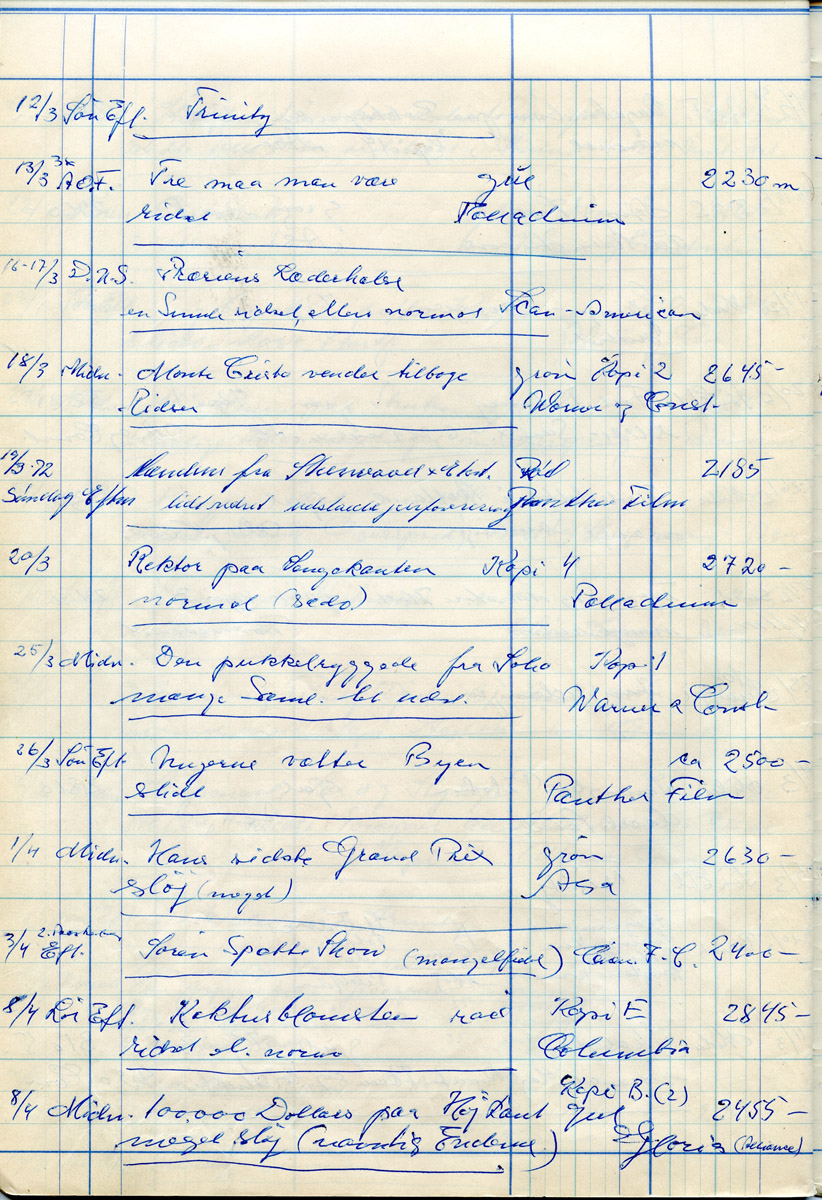 12/3 Søn Eft. Trinity
13/3 A.O.F. Tre maa man være gul 2230 m
ridset Palladium
16-17/3 D.N.S. Præriens Læderhalse
en Smule ridset, ellers normal Scan-American
18/3 Midn. Monte Cristo vender tilbage grøn Kopi 2 2645 -
Ridser Warner og Const.
19/3-72 Manden fra Sherwood Rød 2185
Søndag Eftm lidt ridset perforering Panther Film
20/3 Rektor paa Sengekanten Kopi 4 2720 -
normal Palladium
25/3 Midn. Den pukkelryggede fra Soho Kopi 1
mange Saml. Warner & Const.
26/3 Søn Eft. Ungerne vælter Byen ca 2500 -
Slidt Panther Film
1/4 Midn. Hans sidste Grand Prix grøn 2630 -
støj (meget) Asa
3/4 Eft. Søren Spætte Show (mangelfuld) F.C. 2400 -
8/4 Lør Eft. Kaktusblomsten rød Kopi E 2845 -
ridset el. norm Columbia
Kopi B. (2)
8/4 Midn. 100,000 Dollars paa Høj Kant gul 2455 -
noget støj (navnlig Enderne) Gloria (Alliance)